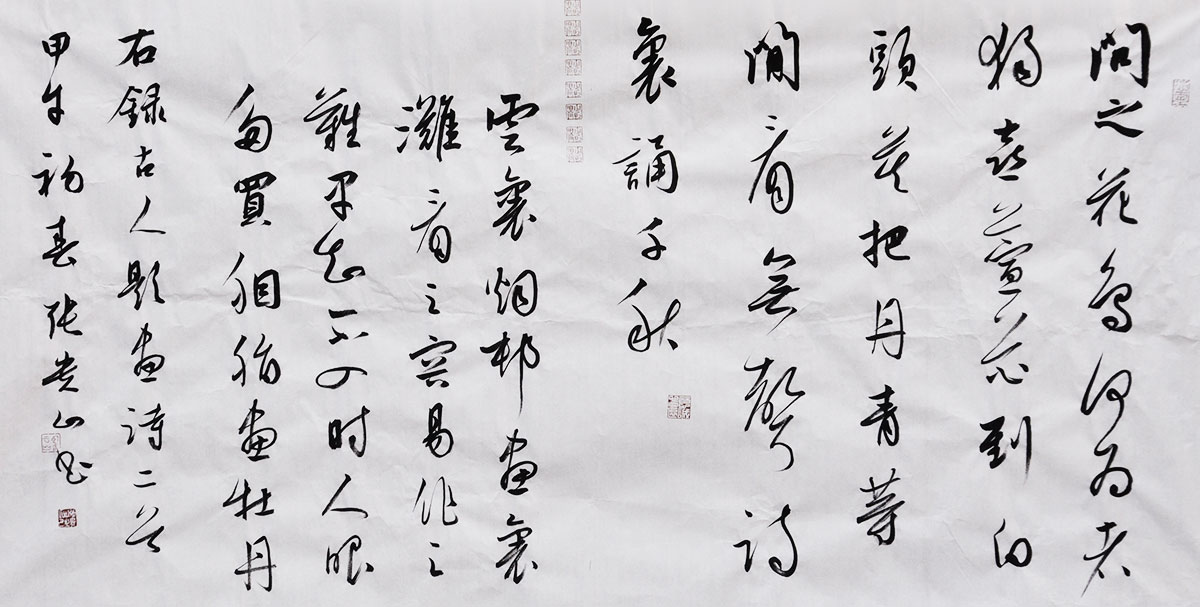 問之花鳥何為者
獨喜萱芯到白
頭莫把丹青等
閒看無聲詩
裏誦千秋
雲裏烟邨畫裏
灘看之容易作之
難早知不可時人眼
多買胭脂畫牡丹
右録古人題畫詩二首
甲午初春張貴山書